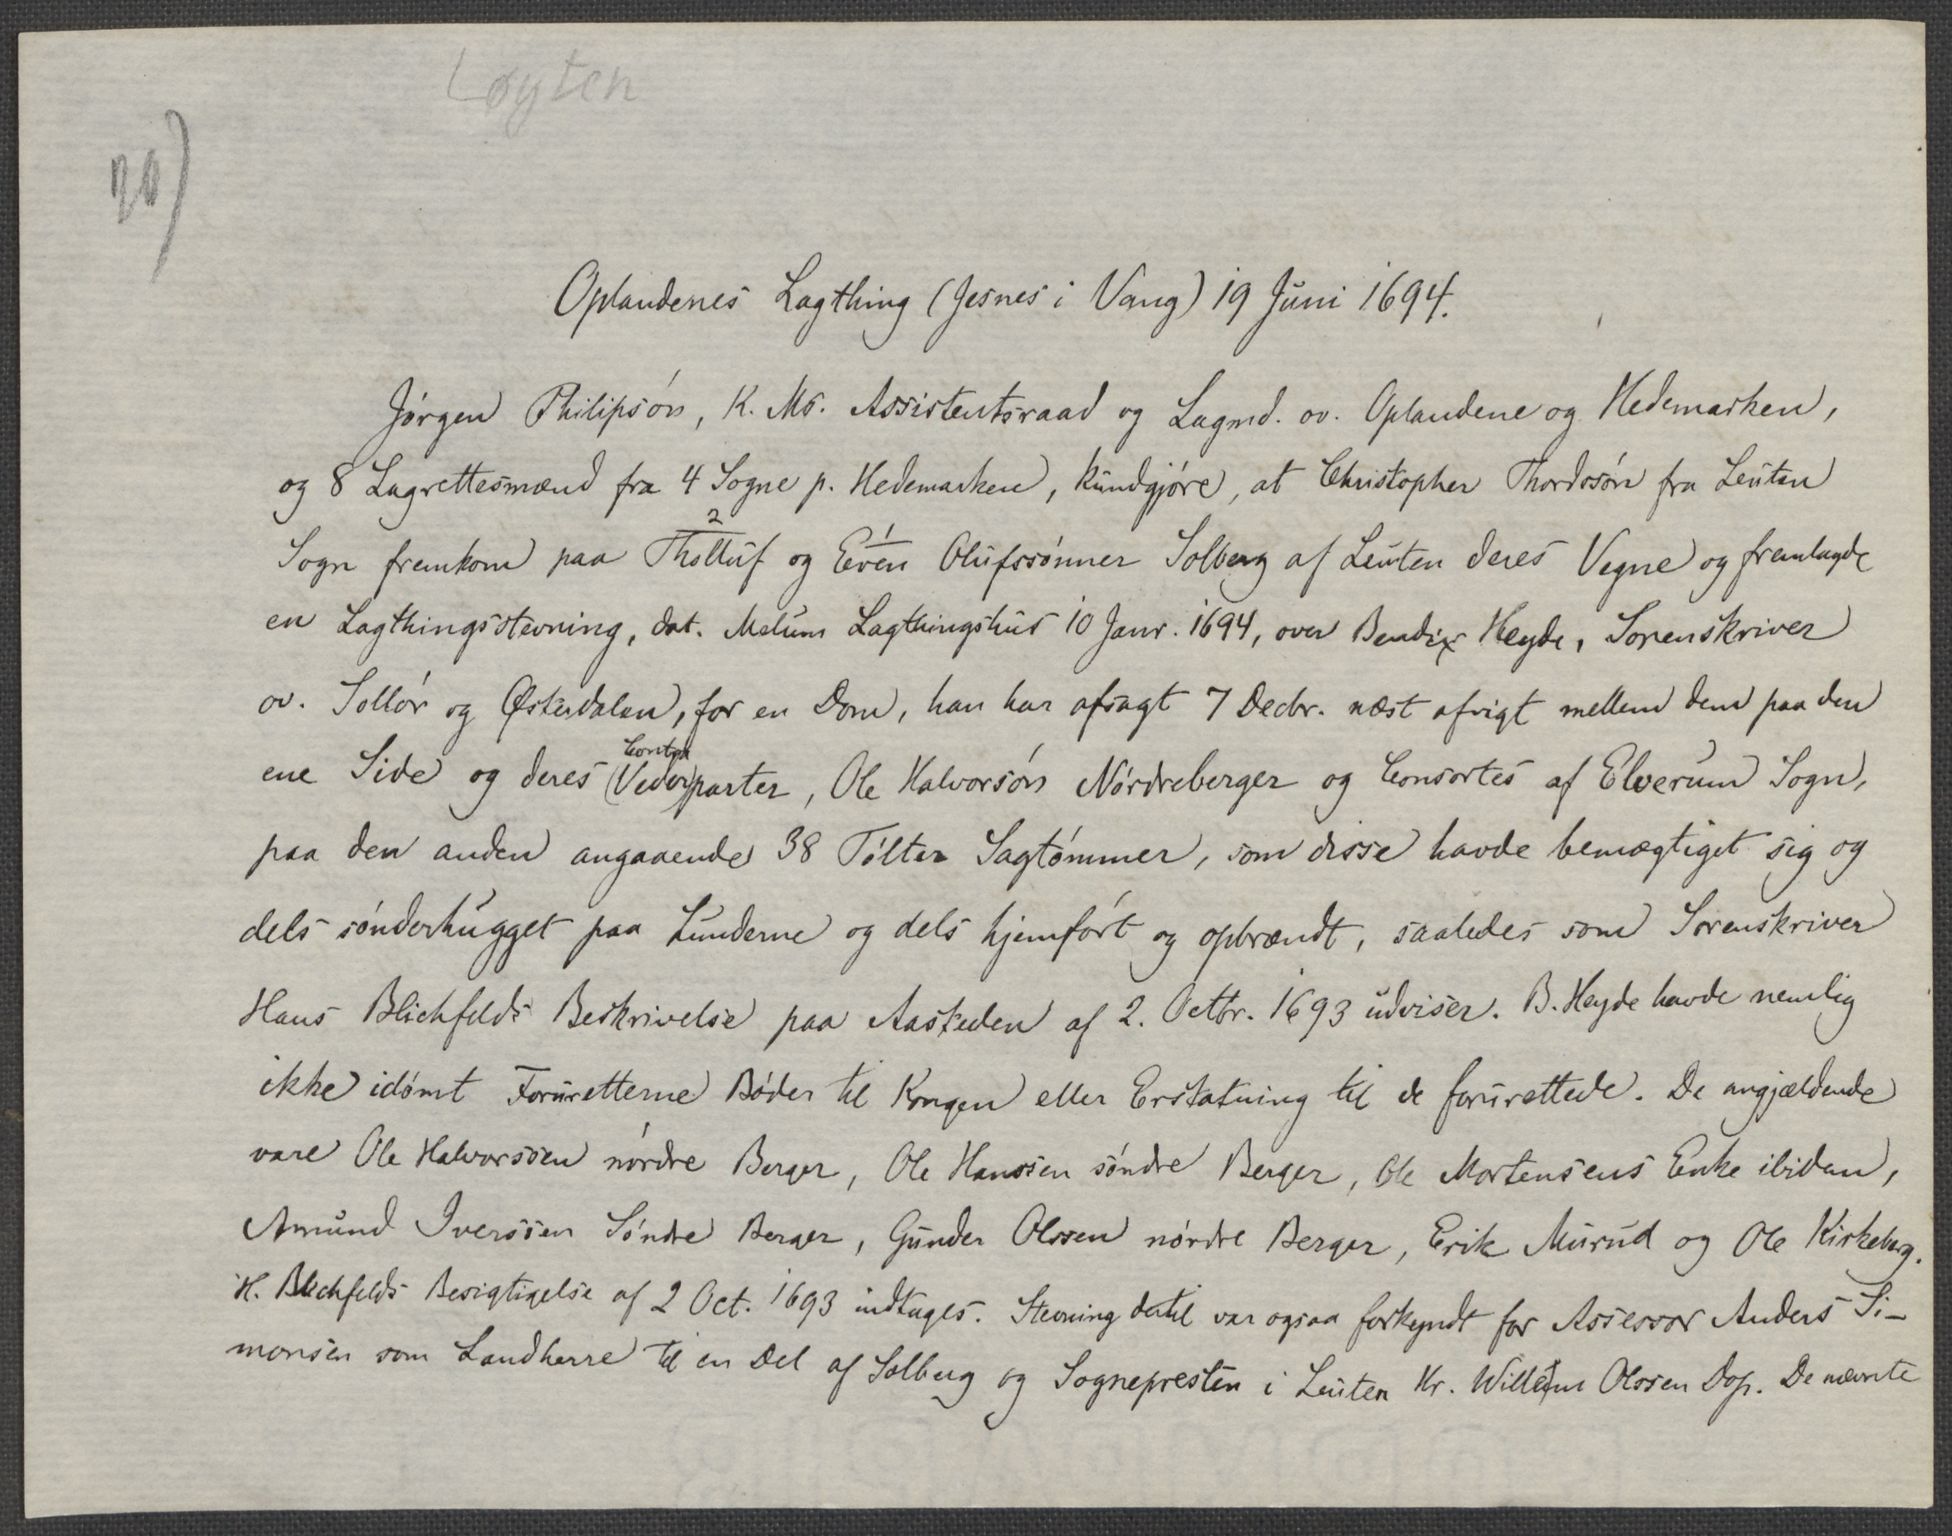 Løyten
20)
Oplandenes Lagthing (Jesnes i Vang) 19 Juni 1694.
Jørgen Philipsøn, K. Ms. Assistentsraad og Lagmd. ov. Oplandene og Hedemarken,
og 8 Lagrettesmænd fra 4 Sogne p. Hedemarken, kundgjøre, at Christopher Thordssøn fra Leuten
2 1
Sogn fremkom paa Tholluf og Even Olufssønner Solberg af Leuten deres Vegne og fremlagde
en Lagthingsstevning, dat. Melum Lagthingshus 10 Janr. 1694, over Bendix Heyde, Sorenskriver
ov. Soløer og Østerdalen, for en Dom, han har afsagt 7 Decbr. næst afvigt mellem dem paa den
Contra
ene Side og deres (Veder)parter, Ole Halvorsøn Nordreberger og Consortes af Elverum Sogn,
paa den anden angaaende 38 Tølter Sagtømmer, som disse havde bemægtiget sig og
dels sønderhugget paa Lunderne og dels hjemført og opbrændt, saaledes som Sorenskriver
Hans Blichfelds Beskrivelse paa Aasteden af 2. Octbr. 1693 udviser. B. Heyde havde nemlig
ikke idømt Foruretterne Bøder til Kongen eller Erstatning til de forurettede. De angjældende
vare Ole Halvorssen nordre Berger, Ole Hanssen søndre Berger, Ole Mortensens Enke ibidem,
Amund Iverssen Søndre Berger, Gunder Olssen nordre Berger, Erik Murud og Ole Kirkeberg.
H. Blichfelds Besigtigelse af 2 Oct. 1693 indtages. Stevning dertil var ogsaa forkyndt for Assessor Anders Si-
monsen som Landherre til en Del af Solberg og Sognepresten i Leuten Hr. Willem Olssen Dop. De nævnte